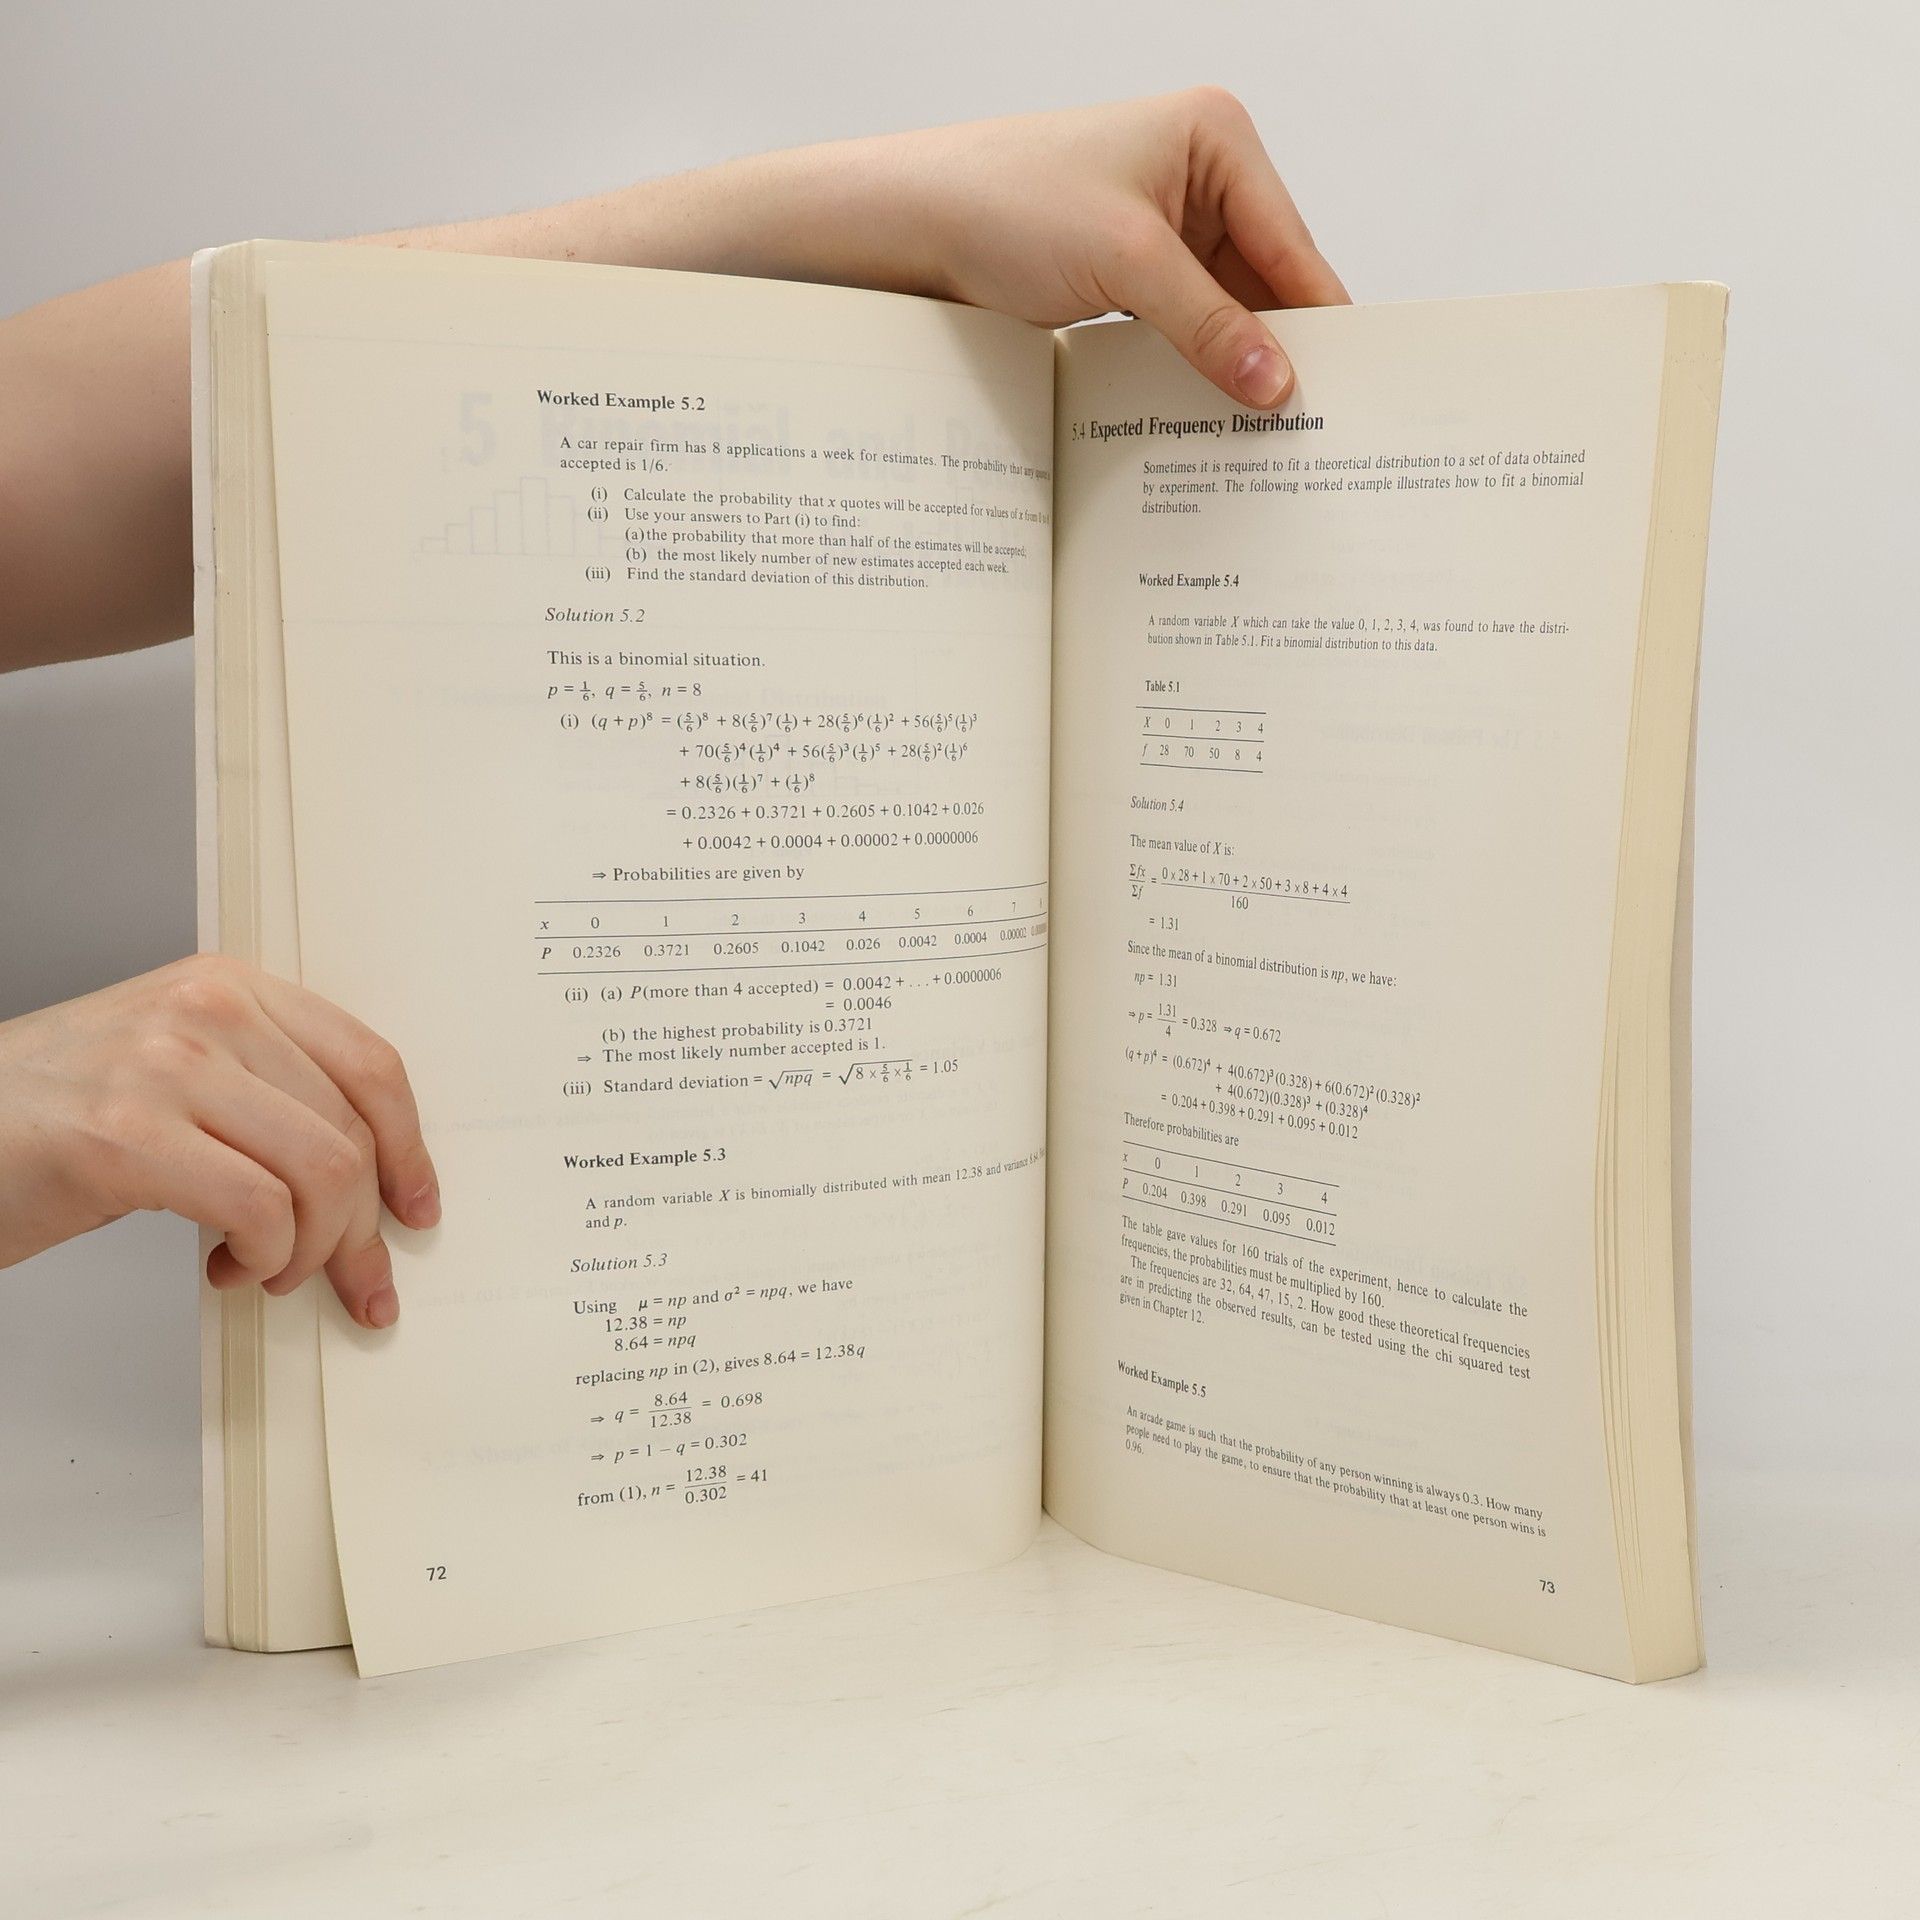 Worked Example 5.2
A car repair firm has 8 applications a week for estimates. The probability that any
accepted is 1/6.
(i) Calculate the probability that x quotes will be accepted for values of x from
(ii) Use your answers to Part (i) to find:
(a) the probability that more than half of the estimates will be accepted;
(b) the most likely number of new estimates accepted each week.
(iii) Find the standard deviation of this distribution.
Solution 5.2
This is a binomial situation.
p = 1/6, q = 5/6, n = 8
(i) (q + p)⁸ = (5/6)⁸ + 8(5/6)⁷(1/6) + 28(5/6)⁶(1/6)² + 56(5/6)⁵(1/6)³
+ 70(5/6)⁴(1/6)⁴ + 56(5/6)³(1/6)⁵ + 28(5/6)²(1/6)⁶
+ 8(5/6)(1/6)⁷ + (1/6)⁸
= 0.2326 + 0.3721 + 0.2605 + 0.1042 + 0.026
+ 0.0042 + 0.0004 + 0.00002 + 0.0000006
⇒ Probabilities are given by
x 0 1 2 3 4 5 6 7
P 0.2326 0.3721 0.2605 0.1042 0.026 0.0042 0.0004 0.00002
(ii) (a) P(more than 4 accepted) = 0.0042 + . . . + 0.0000006
= 0.0046
(b) the highest probability is 0.3721
⇒ The most likely number accepted is 1.
(iii) Standard deviation = √npq = √8 × 5/6 × 1/6 = 1.05
Worked Example 5.3
A random variable X is binomially distributed with mean 12.38 and variance 8.64.
and p.
Solution 5.3
Using μ = np and σ² = npq, we have
12.38 = np
8.64 = npq
replacing np in (2), gives 8.64 = 12.38q
⇒ q = 8.64/12.38 = 0.698
⇒ p = 1 − q = 0.302
from (1), n = 12.38/0.302 = 41
72
5.4 Expected Frequency Distribution
Sometimes it is required to fit a theoretical distribution to a set of data obtained
by experiment. The following worked example illustrates how to fit a binomial
distribution.
Worked Example 5.4
A random variable X which can take the value 0, 1, 2, 3, 4, was found to have the distri-
bution shown in Table 5.1. Fit a binomial distribution to this data.
Table 5.1
X 0 1 2 3 4
f 28 70 50 8 4
Solution 5.4
The mean value of X is:
Σfx/Σf = 0 x 28 + 1 x 70 + 2 x 50 + 3 x 8 + 4 x 4/160
= 1.31
Since the mean of a binomial distribution is np, we have:
np = 1.31
⇒ p = 1.31/4 = 0.328 ⇒ q = 0.672
(q + p)⁴ = (0.672)⁴ + 4(0.672)³(0.328) + 6(0.672)²(0.328)²
+ 4(0.672)(0.328)³ + (0.328)⁴
= 0.204 + 0.398 + 0.291 + 0.095 + 0.012
Therefore probabilities are
x 0 1 2 3 4
P 0.204 0.398 0.291 0.095 0.012
The table gave values for 160 trials of the experiment, hence to calculate the
frequencies, the probabilities must be multiplied by 160.
The frequencies are 32, 64, 47, 15, 2. How good these theoretical frequencies
are in predicting the observed results, can be tested using the chi squared test
given in Chapter 12.
Worked Example 5.5
An arcade game is such that the probability of any person winning is always 0.3. How many
people need to play the game, to ensure that the probability that at least one person wins is
0.96.
73